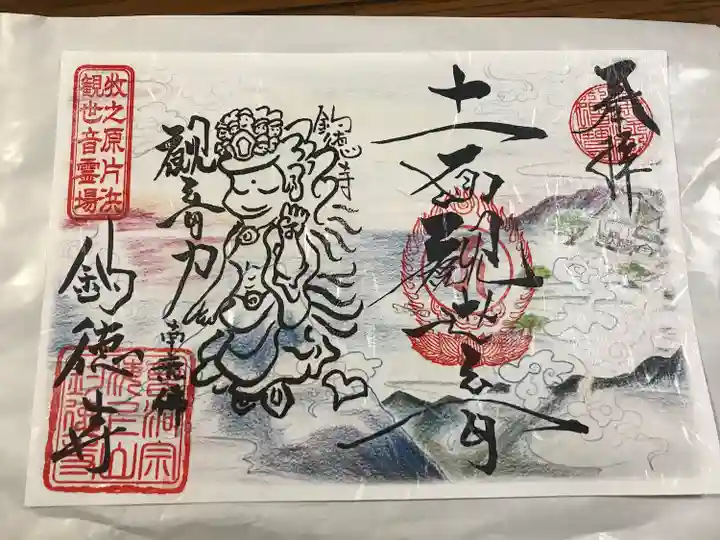 奉拝
十一面観世音
釣徳寺
観音力
南無佛
牧之原片浜
観世音霊場
釣徳寺